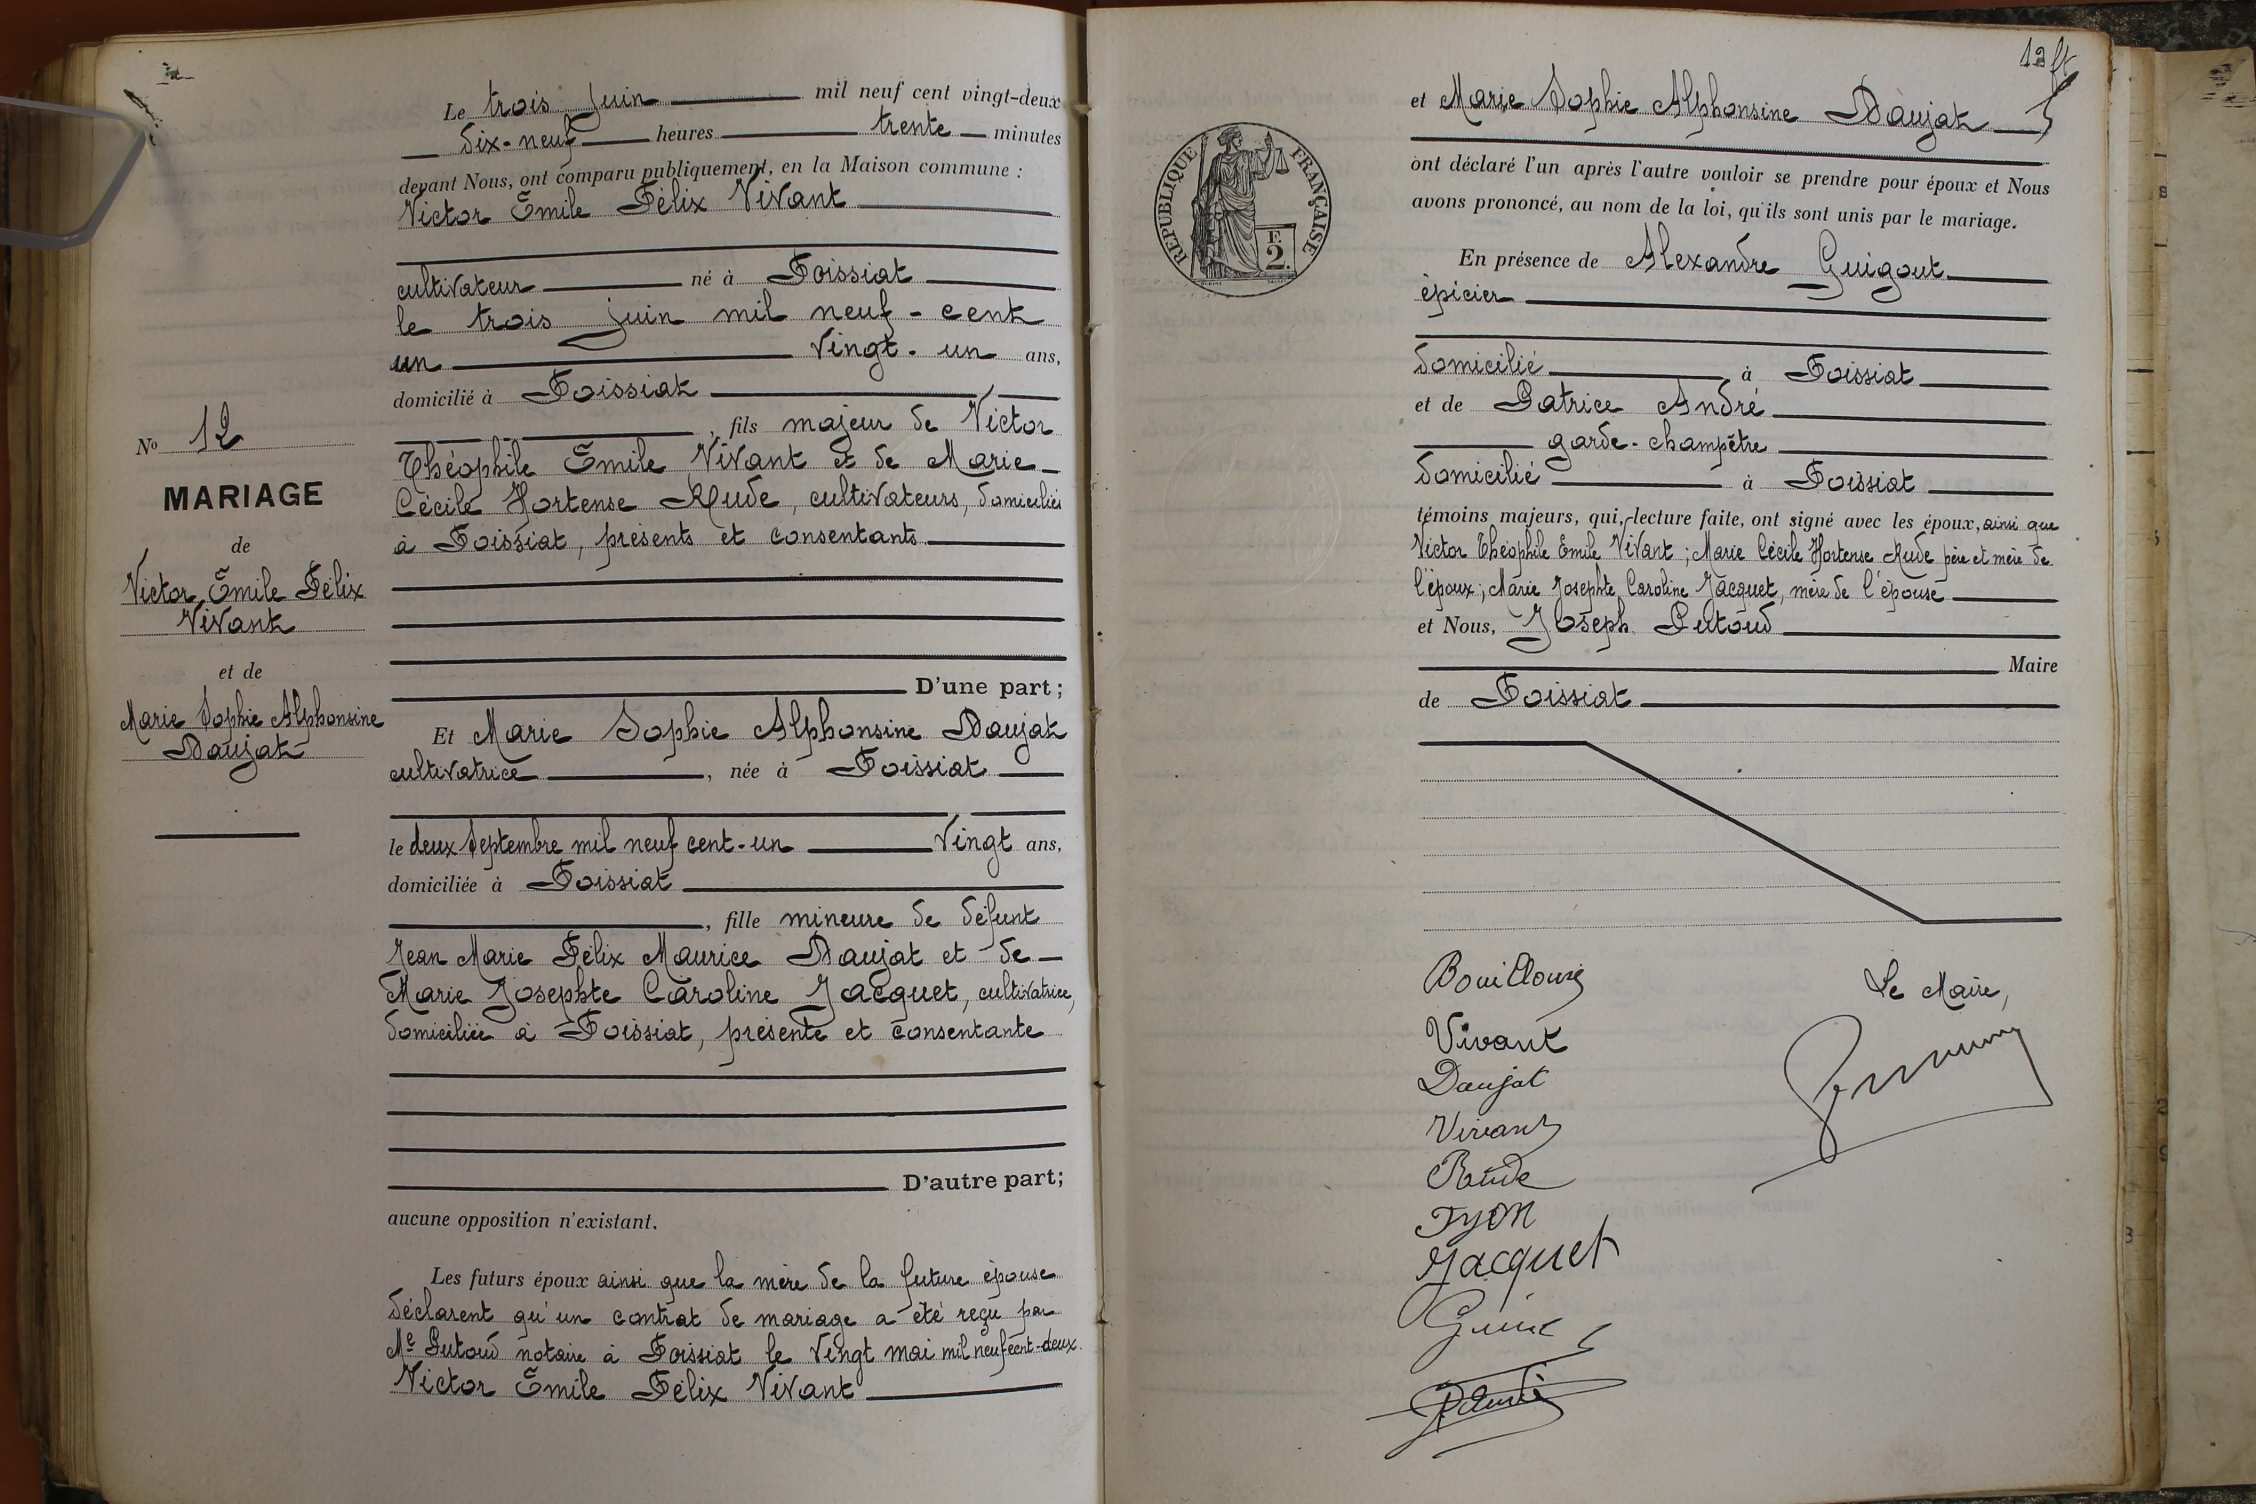 Le trois Juin mil neuf cent vingt-deux
dix-neuf heures trente minutes
devant Nous, ont comparu publiquement, en la Maison commune :
Victor Émile Félix Vivant
cultivateur né à Foissiat
le trois Juin mil neuf-cent
un vingt-un ans,
domicilié à Foissiat
, fils majeur de Victor
Théophile Émile Vivant et de Marie
Cécile Hortense Rude, cultivateurs, domiciliés
à Foissiat, présents et consentants
D'une part ;
Et Marie Sophie Alphonsine Daujat
cultivatrice, née à Foissiat
le deux Septembre mil neuf cent-un Vingt ans,
domiciliée à Foissiat
, fille mineure de défunt
Jean Marie Félix Maurice Daujat et de
Marie Josephte Caroline Jacquet, cultivatrice,
domiciliée à Foissiat, présente et consentante
D'autre part ;
aucune opposition n'existant.
Les futurs époux ainsi que la mère de la future épouse
déclarent qu'un contrat de mariage a été reçu par
Me Putoud notaire à Foissiat le vingt mai mil neuf cent-deux.
Victor Émile Félix Vivant
No 12
MARIAGE
de
Victor Émile Félix
Vivant
et de
Marie Sophie Alphonsine
Daujat
12
et Marie Sophie Alphonsine Daujat
RÉPUBLIQUE FRANÇAISE
F.
2.
ont déclaré l'un après l'autre vouloir se prendre pour époux et Nous
avons prononcé, au nom de la loi, qu'ils sont unis par le mariage.
En présence de Alexandre Guigout
épicier
domicilié à Foissiat
et de Patrice André
garde-champêtre
domicilié à Foissiat
témoins majeurs, qui, lecture faite, ont signé avec les époux, ainsi que
Victor Théophile Émile Vivant ; Marie Cécile Hortense Rude père et mère de
l'époux ; Marie Josephte Caroline Jacquet, mère de l'épouse
et Nous, Joseph Putoud
Maire
de Foissiat
Vivant
Daujat
Vivant
Rude
Fyon
Jacquet
Le Maire,